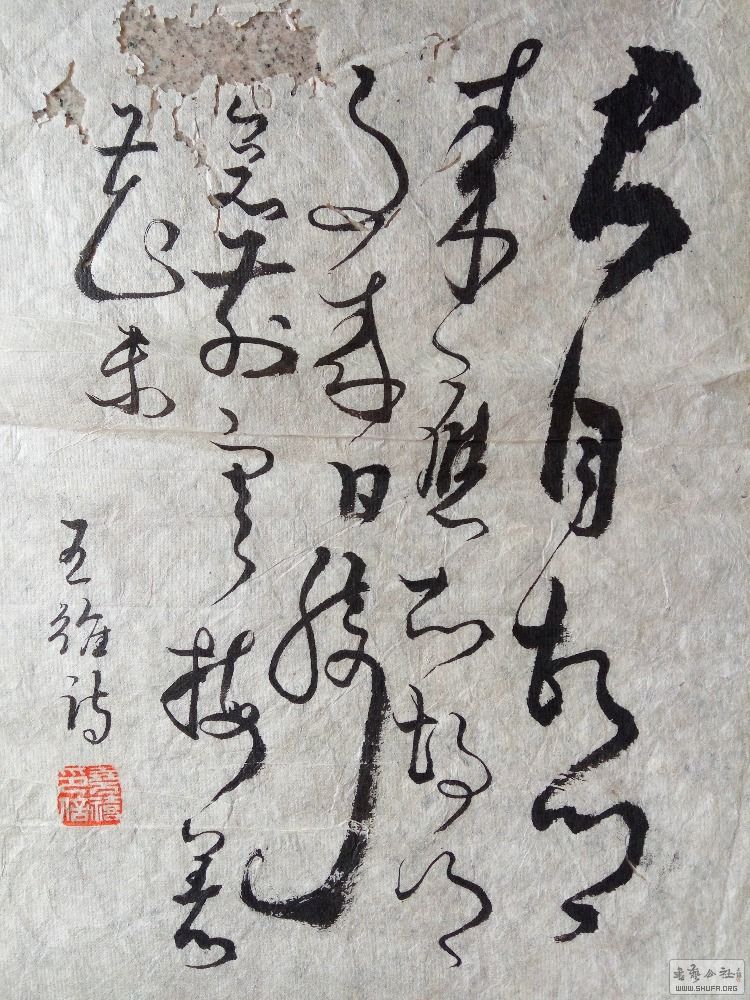 君自故鄉
來應知故鄉
事來日綺
窗前寒梅著
花未
王維詩
書藝公社
WWW.SHUFA.ORG